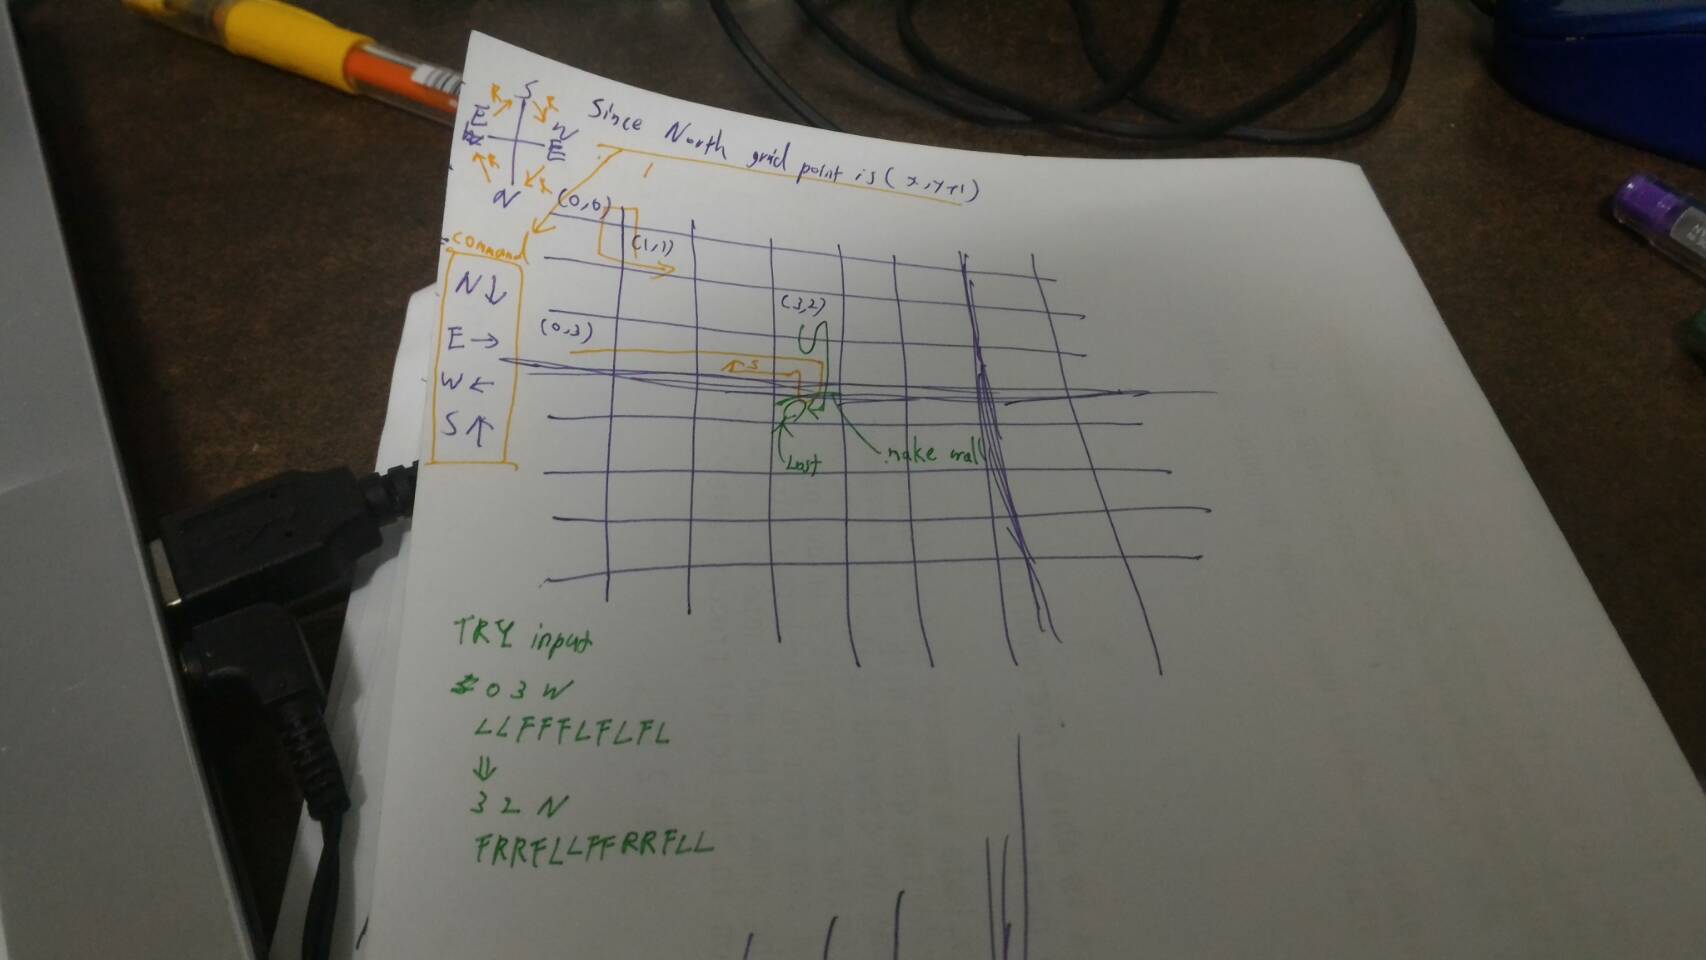 S
R R
E W
E
R R
N
Since North grid point is (x, y+1)
(0,0)
(1,1)
command
N↓
E→
W←
S↑
(3,2)
(0,3)
S
Lost
make wall
TRY input
0 3 W
LLFFFLFLFL
⇓
3 2 N
FRRFLLFFRRFLL